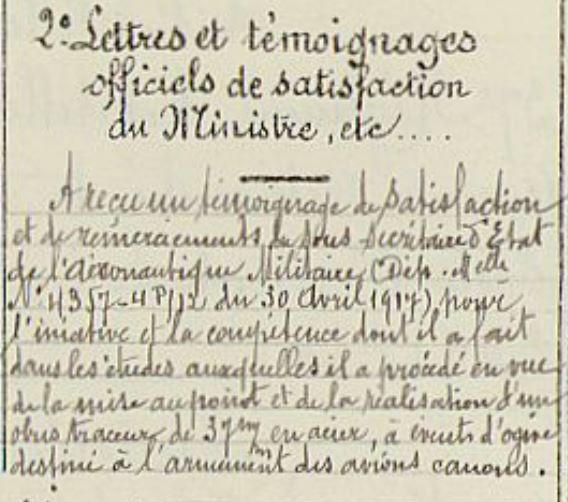 2º Lettres et témoignages
officiels de satisfaction
du Ministre, etc....
A reçu un témoignage de satisfaction
et de remerciements du Sous Secrétaire d'Etat
de l'Aéronautique Militaire (Dép. Melle
Nº 4357-4P/12 du 30 Avril 1917) pour
l'iniative et la compétence dont il a fait
dans les études auxquelles il a procédé en vue
de la mise au point et de la réalisation d'un
obus traceur de 37mm en acier, à évents d'ogive
destiné à l'armement des avions canons.